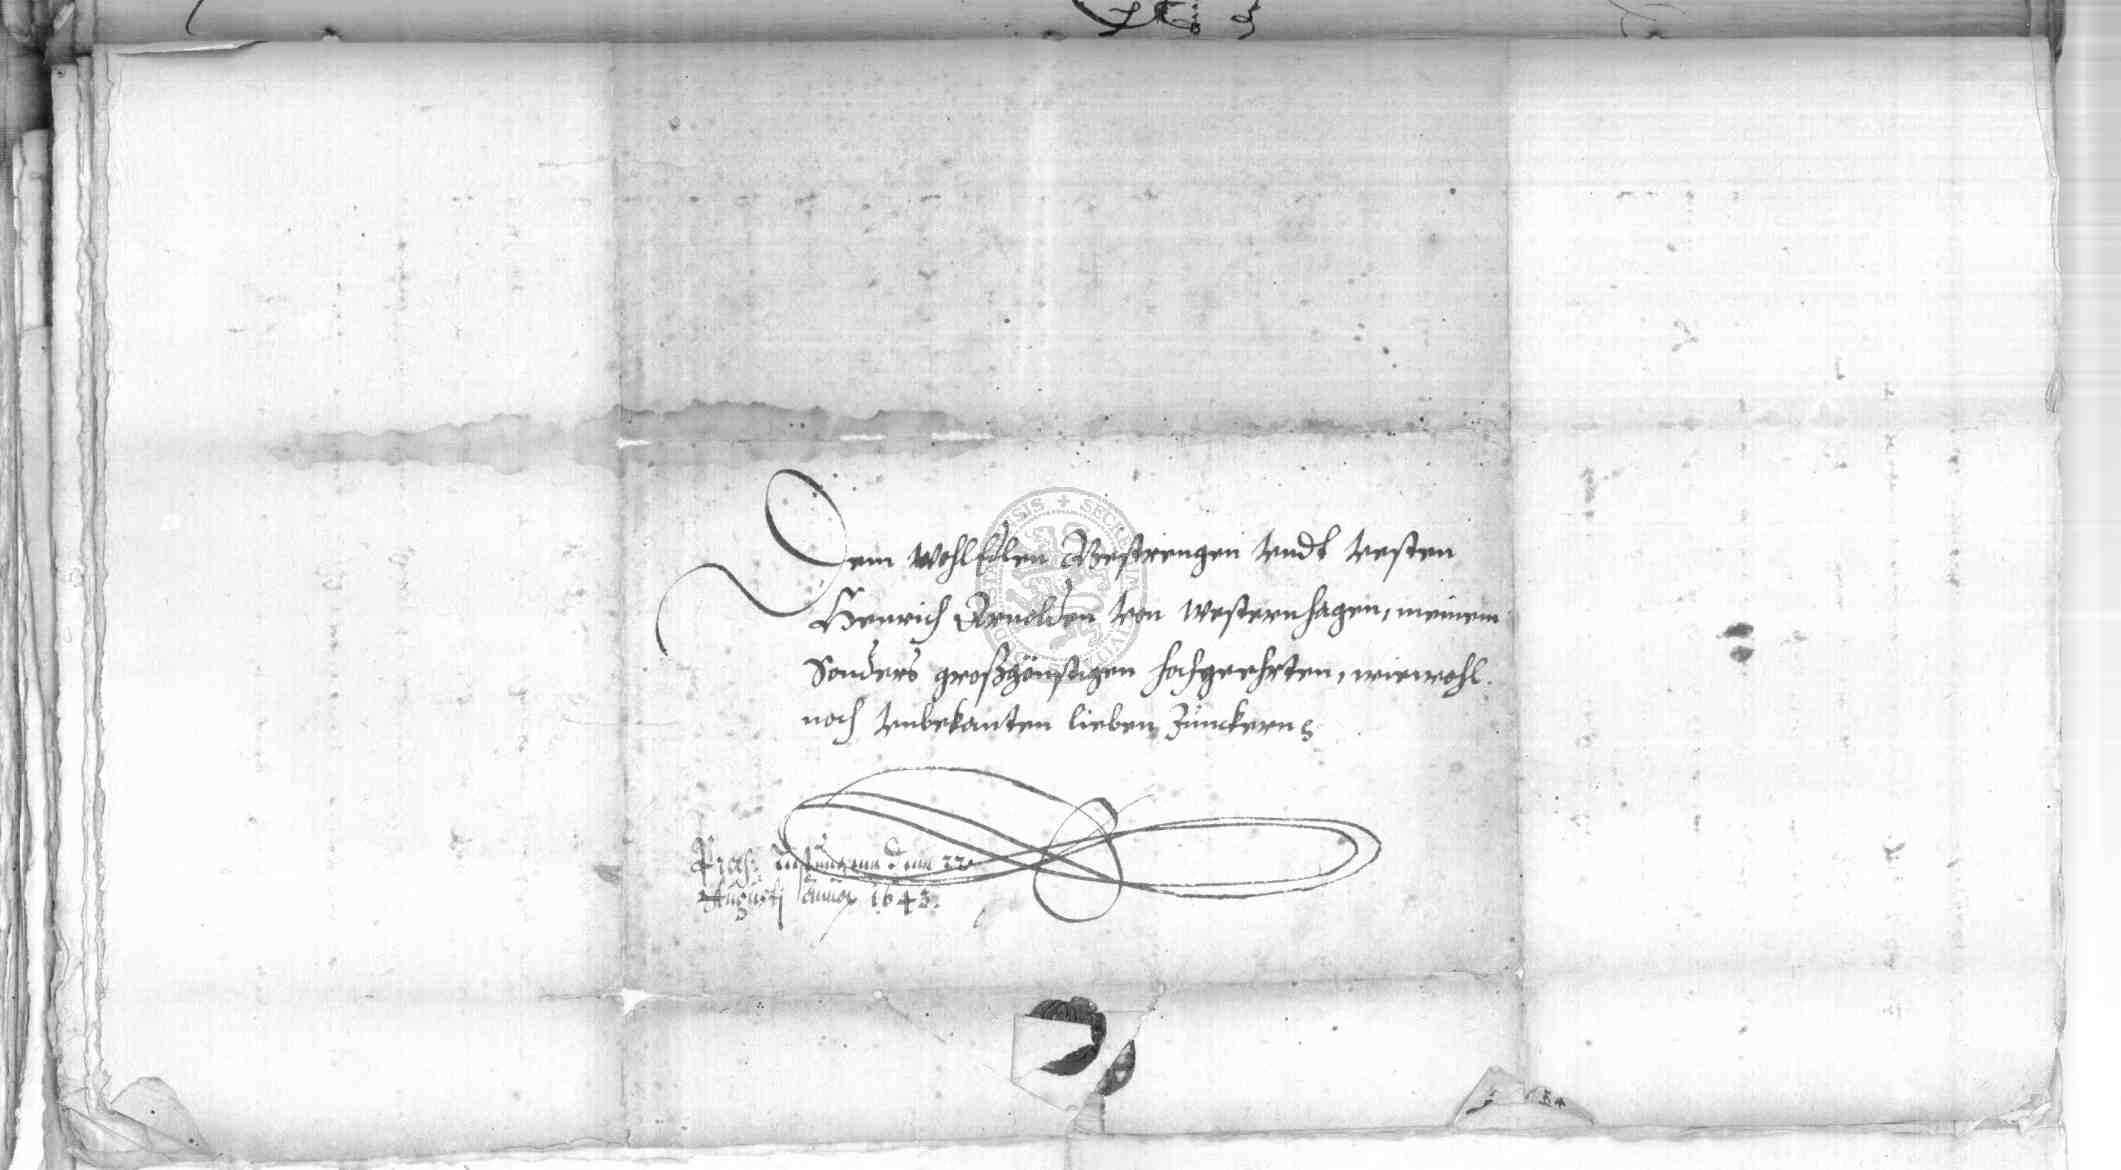 Dem WohlEdlen Gestrengen vndt vesten
Henrich Arnolden von Westernhagen, meinem
Sonders großgönstigen hochgeehrten, wiewohl
noch vnbekanten lieben Junckern
Præs: denn 22
Augusti 1643.